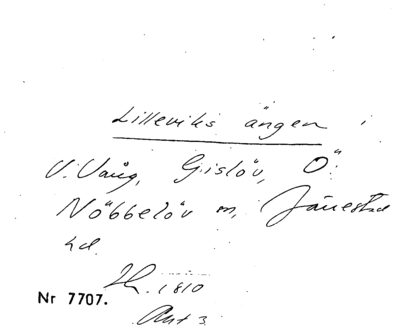 Lilleviks ängen
V. Vång, Gislöv, Ö.
Nöbbelöv m, Järrestad
hd.
1810
Nr 7707.
Akt 3